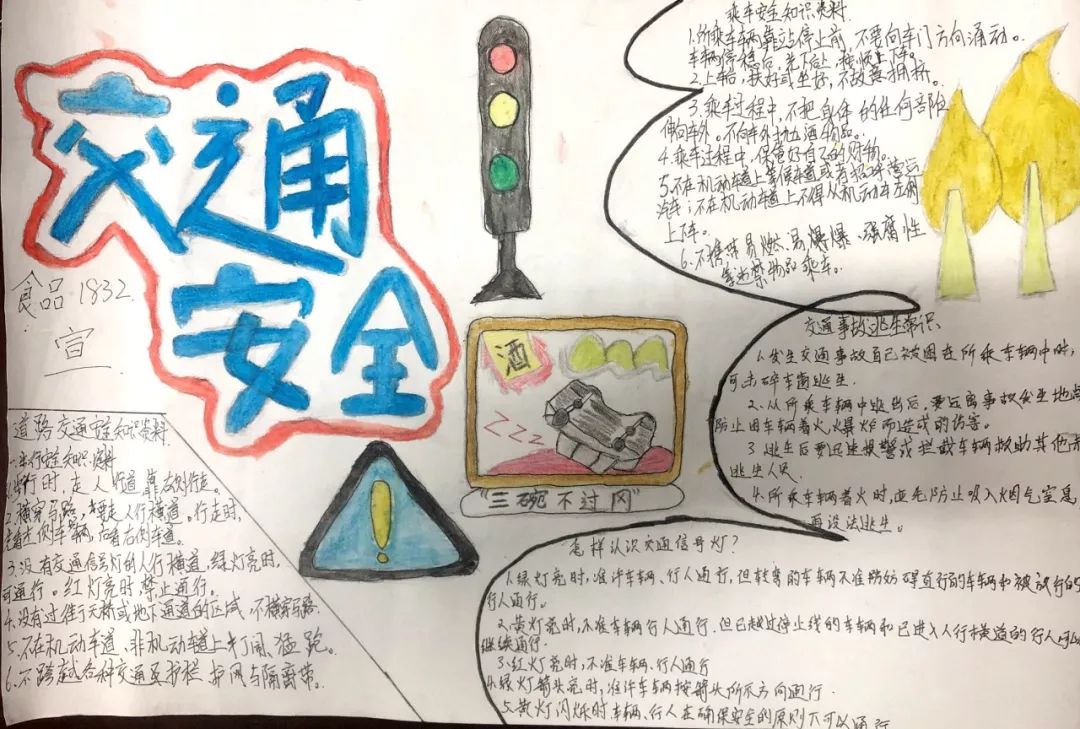 交通
安全
食品 1832
宣
道路交通安全知识资料
一、步行安全知识资料
1.步行时,走人行道,靠右侧行走。
2.横穿马路,要走人行横道。行走时,
先看左侧车辆,后看右侧车道。
3.没有交通信号灯的人行横道,绿灯亮时,
可通行。红灯亮时,禁止通行。
4.没有过街天桥或地下通道的区域,不横穿马路
5.不在机动车道、非机动车道上打闹、猛跑。
6.不跨越各种交通及护栏、护网与隔离带。
酒
ZZZ
"三碗不过冈"
乘车安全知识资料
1.所乘车辆靠站停止前,不要向车门方向涌动。
车辆停稳后,先下后上,按顺上车。
2.上车后,扶好或坐好,不故意拥挤。
3.乘车过程中,不把身体的任何部位
伸向车外。不向车外抛洒物品。
4.乘车过程中,保管好自己的财物。
5.不在机动车道上等候车道或者招呼营运
汽车;不在机动车道上不得从机动车左侧
上下车。
6.不携带易燃、易爆爆、强腐性
等违禁物品乘车。
交通事故逃生常识
1.发生交通事故自己被困在所乘车辆中时,
可击碎车窗逃生.
2.从所乘车辆中逃出后,要远离事故发生地点
防止因车辆着火,爆炸而造成的伤害。
3.逃生后要迅速报警或拦截车辆救助其他未
逃生人员.
4.所乘车辆着火时,应先防止吸入烟气窒息,
再设法逃生。
怎样认识交通信号灯?
1.绿灯亮时,准许车辆、行人通行,但转弯的车辆不准妨妨碍直行的车辆和被放行的
行人通行。
2.黄灯亮时,不准车辆行人通行.但已越过停止线的车辆和已进入人行横道的行人可以
继续通行.
3.红灯亮时,不准车辆、行人通行
4.绿灯箭头亮时,准许车辆按箭头所示方向通行.
5.黄灯闪烁时车辆、行人在确保安全的原则下可以通行